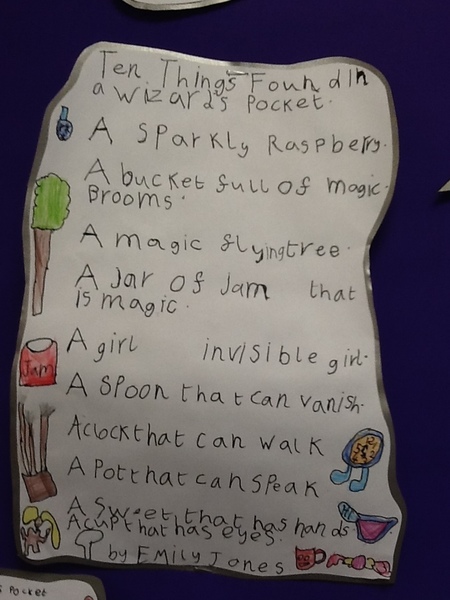 Ten Things Found In
a wizards Pocket.
A Sparkly Raspberry.
A bucket full of magic
Brooms.
A magic flying tree.
A Jar of Jam that
is magic.
A girl invisible girl.
A Spoon that can vanish.
A clock that can walk
A Pot that can speak
A Sweet that has hands.
A cup that has eyes.
by Emily Jones
Jam
Hi
s Pocket